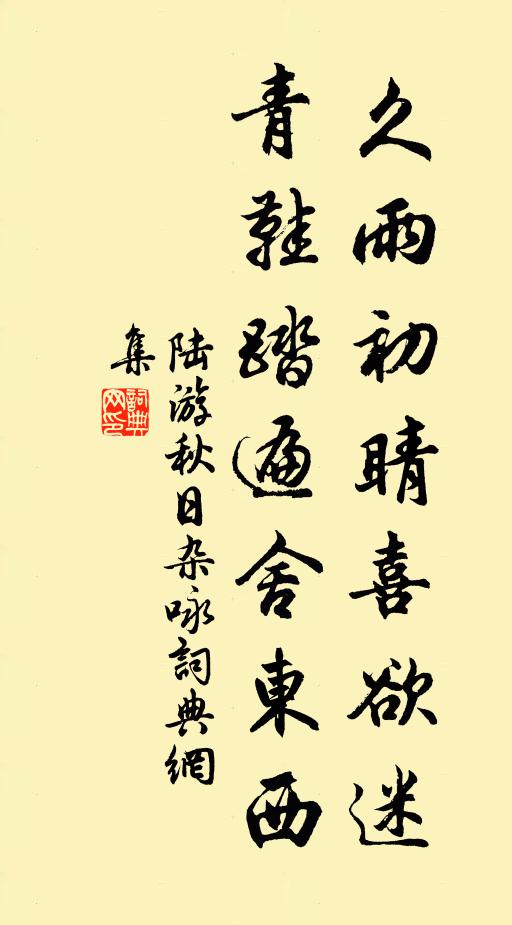 久雨初晴喜欲迷
青鞋踏遍舍東西
陸游秋日杂咏詞典網
集
詞典
网印